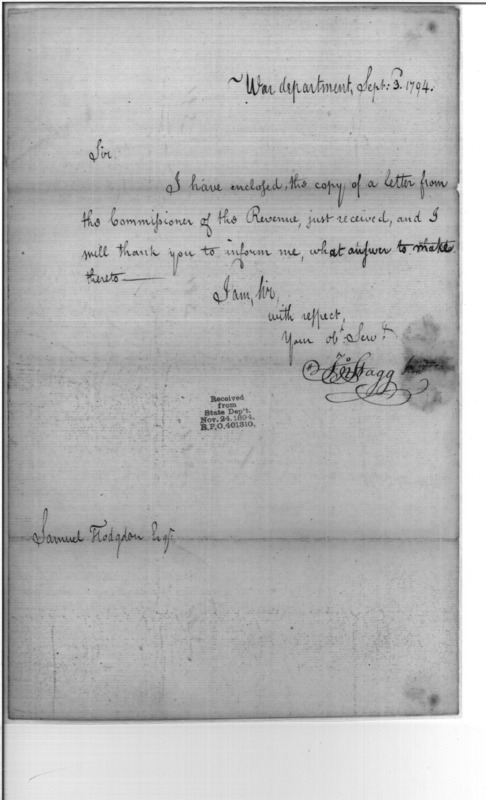 War department, Sept: 3. 1794.
Sir
I have enclosed, the copy, of a letter from
the Commissioner of the Revenue, just received, and I
will thank you to inform me, what answer to make
thereto
I am, Sir,
with respect,
Your obt. Servt.
Jno Stagg
Received
from
State Dep't.
Nov. 24. 1894.
R.P.O. 401310.
Samuel Hodgdon Esqr.